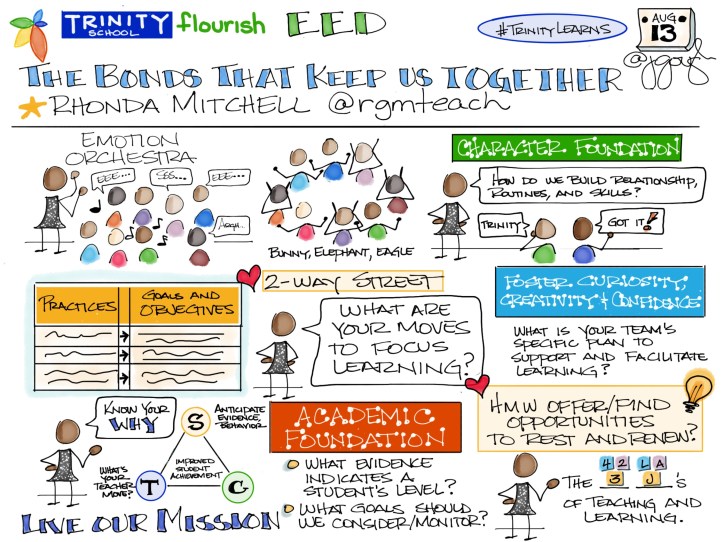 TRINITY
SCHOOL
flourish
EED
#TRINITYLEARNS
AUG
13
@jgough
THE BONDS THAT KEEP US TOGETHER
RHONDA MITCHELL @rgmteach
EMOTION
ORCHESTRA
EEE...
SSS...
EEE...
ARGH..
BUNNY, ELEPHANT, EAGLE
CHARACTER FOUNDATION
HOW DO WE BUILD RELATIONSHIP,
ROUTINES, AND SKILLS?
TRINITY
GOT IT!
PRACTICES
GOALS AND
OBJECTIVES
2-WAY STREET
WHAT ARE
YOUR MOVES
TO FOCUS
LEARNING?
FOSTER CURIOSITY,
CREATIVITY & CONFIDENCE
WHAT IS YOUR TEAM'S
SPECIFIC PLAN TO
SUPPORT AND FACILITATE
LEARNING?
KNOW YOUR
WHY
S
ANTICIDATE
EVIDENCE,
BEHAVIOR
IMPROVED
STUDENT
ACHIEVEMENT
WHAT'S
YOUR
TEACHER
MOVE?
T
G
LIVE OUR MISSION
ACADEMIC
FOUNDATION
WHAT EVIDENCE
INDICATES A
STUDENT'S LEVEL?
WHAT GOALS SHOULD
WE CONSIDER/MONITOR?
HMW OFFER/FIND
OPPORTUNITIES
TO REST AND RENEW?
4 2 L A
THE 3 J's
OF TEACHING AND
LEARNING.